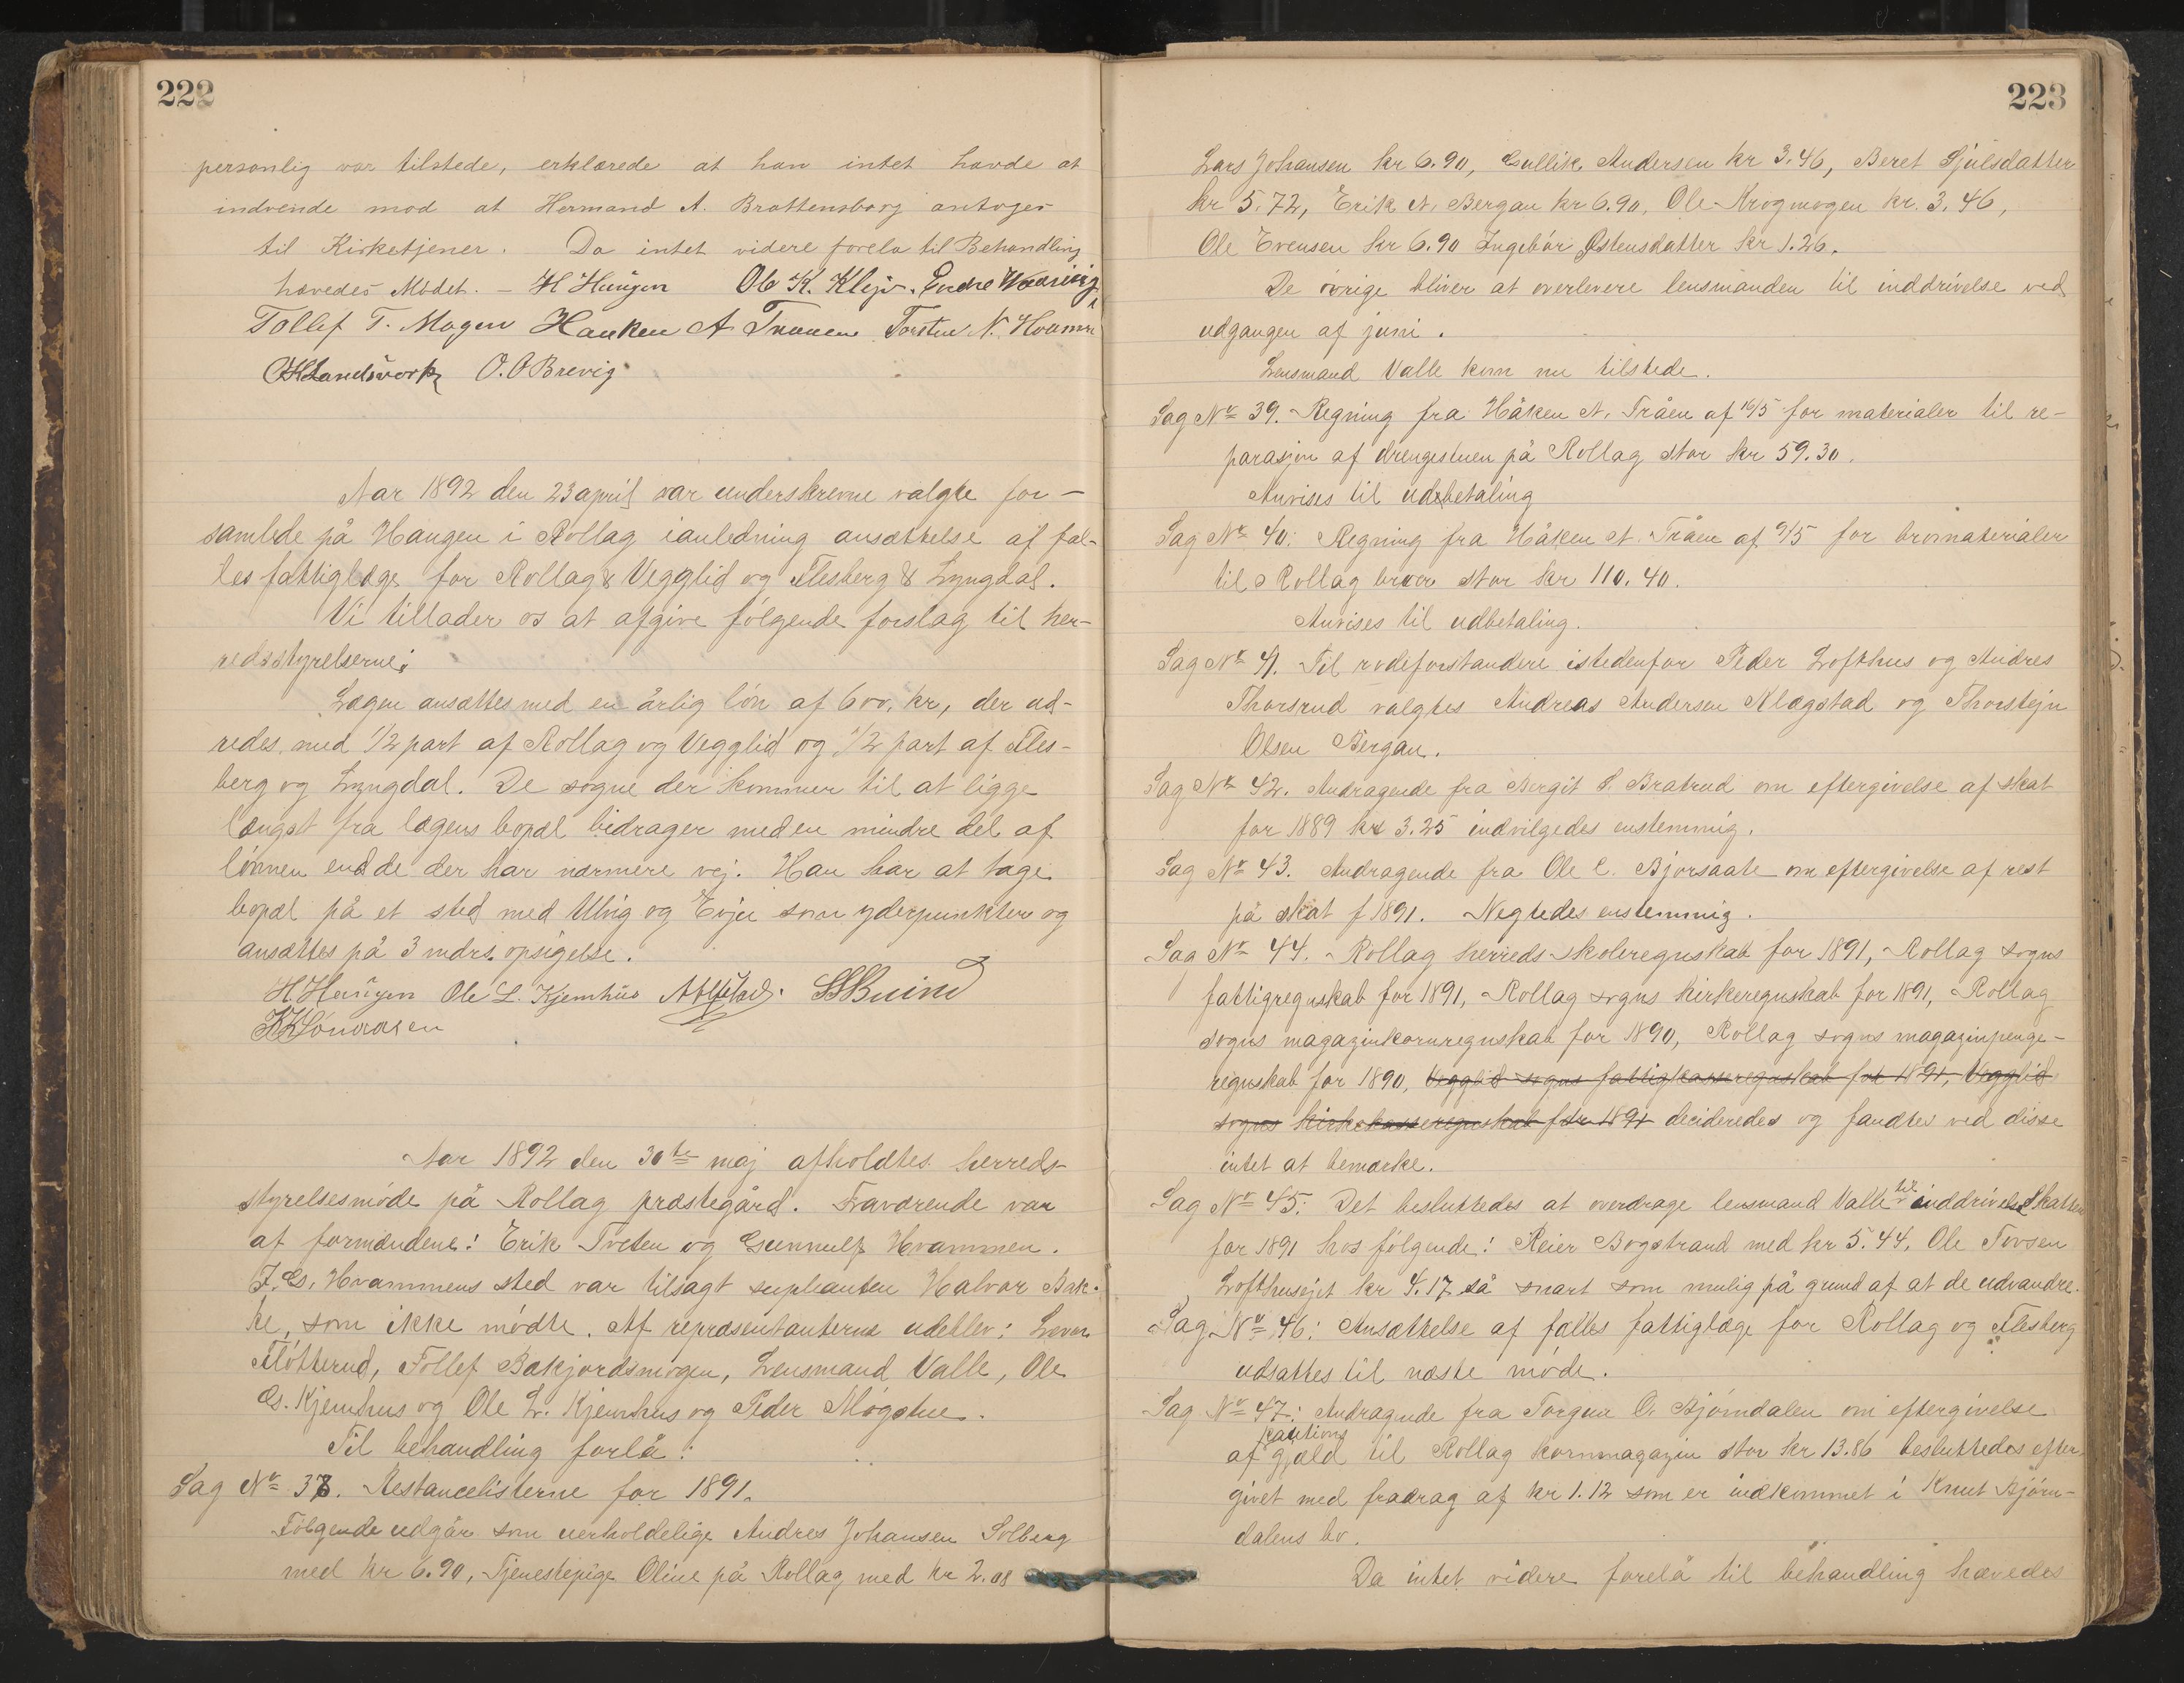 222
personlig var tilstede, erklærede at han intet havde at
indvende mod at Hermand A. Brattensborg antoges
til Kirketjener. Da intet videre forela til Behandling
hævedes Mødet. – H Haugen Ole K. Klejv. Endre
Tollef T. Mogen Haaken A Traaen Torsten N.
O. O Brevig
Aar 1892 den 23 april var underskrevne valgte for-
samlede på Haugen i Rollag ianledning ansættelse af fæl-
les fattiglæge for Rollag & Vegglid og Flesberg & Lyngdal.
Vi tillader os at afgive følgende forslag til her-
redsstyrelserne:
Lægen ansættes med en årlig løn af 600, kr, der ud-
redes med 1/2 part af Rollag og Vegglid og 1/2 part af Fles-
berg og Lyngdal. De sogne der kommer til at ligge
længst fra lægens bopæl bidrager med en mindre del af
lønnen end de der har nærmere vej. Han har at tage
bopæl på et sted med Ulvig og Evju som yderpunkter og
ansættes på 3 mdrs. opsigelse.
H Haugen Ole L. Kjemhus
Aar 1892 den 30te maj afholdtes herreds-
styrelsesmøde på Rollag præstegård. Fraværende var
af formændene: Erik Tveten og Gunnulf Hvammen.
I G. Hvammens sted var tilsagt supleanten Halvor Bak-
ke, som ikke mødte. Af repræsentanterne udeblev: Sven
Fløtterud, Tollef Bakjordsmogen, Lensmand Valle, Ole
G. Kjemhus og Ole L. Kjemhus og Peder Møgstue.
Til behandling forlå:
Sag No 38. Restancelisterne for 1891.
Følgende udgår som uerholdelige Andres Johansen Solberg
med kr 6.90, Tjenestepige Oline på Rollag med kr 2.08
223
Lars Johansen kr 6.90, Gullik Andersen kr 3.46, Beret Gjulsdatter
kr 5.72, Erik N. Bergan kr 6.90, Ole Krogmogen kr. 3.46,
Ole Evensen kr 6.90 Ingebør Østensdatter kr 1.26.
De øvrige bliver at overlevere lensmanden til inddrivelse ved
udgangen af juni.
Lensmand Valle kom nu tilstede.
Sag No 39. Regning fra Håken A. Tråen af 16/5 for materialer til re-
parasjon af drengestuen på Rollag stor kr 59.30.
Anvises til udbetaling
Sag No 40: Regning fra Håken A. Tråen af 9/5 for bromaterialer
til Rollag broer stor kr 110.40.
Anvises til udbetaling.
Sag No 41. Til rodeforstandere istedenfor Peder Lofthus og Andres
Thorsrud valgtes Andreas Andersen Klægstad og Thorstejn
Olsen Bergan.
Sag No 42. Andragende fra Bergit S. Bratrud om eftergivelse af skat
for 1889 kr 3.25 indvilgedes enstemmig.
Sag No 43. Andragende fra Ole C. Bjørsaate om eftergivelse af rest
på skat f 1891. Negtedes enstemmig.
Sag No 44. Rollag herreds skoleregnskab for 1891, Rollag sogns
fattigregnskab for 1891, Rollag sogns kirkeregnskab for 1891, Rollag
sogns magazinkornregnskab for 1890, Rollag sogns magazinpenge-
regnskab for 1890, Vegglid sogns fattigkasseregnskab for 1891, Vegglid
sogns kirkekasseregnskab for 1891 decideredes og fandtes ved disse
intet at bemærke.
Sag No 45: Det besluttedes at overdrage lensmand Valle til inddrivelse Skatten
for 1891 hos følgende: Reier Bogstrand med kr 5.44, Ole Tovsen
Lofthusejet kr 4.17 så snart som mulig på grund af at de udvandre.
Sag No 46: Ansættelse af fælles fattiglæge for Rollag og Flesberg
udsattes til næste møde.
Sag No 47: Andragende fra Torgun O. Bjørndalen om eftergivelse
af kautions gjæld til Rollag kornmagazin stor kr 13.86 besluttedes efter-
givet med fradrag af kr 1.12 som er indkommet i Knut Bjørn-
dalens bo.
Da intet videre forelå til behandling hævedes